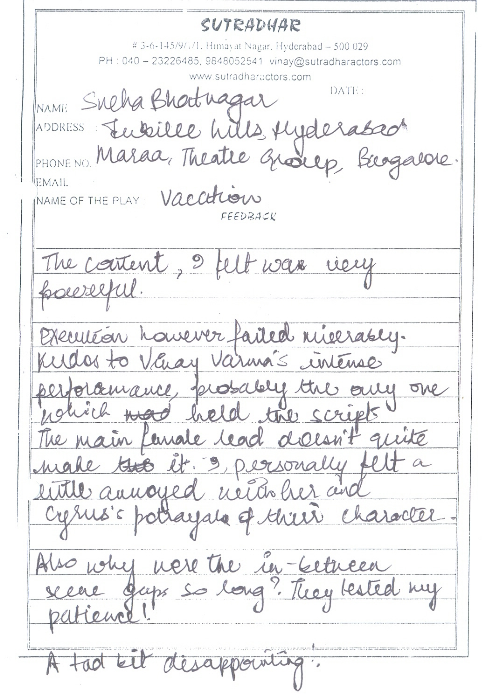 SUTRADHAR
# 3-6-145/9/./1, Himayat Nagar, Hyderabad – 500 029
PH : 040 – 23226485, 9848052541 vinay@sutradharactors.com
www.sutradharactors.com
DATE :
NAME Sneha Bhatnagar
ADDRESS : Jubilee hills, Hyderabad
PHONE NO. Maraa, Theatre Group, Bangalore.
EMAIL
NAME OF THE PLAY : Vacation
FEEDBACK
The content, I felt was very
powerful.
Execution however failed miserably.
Kudos to Vinay Varma's intense
performance, probably the only one
which held the script
The main female lead doesn't quite
make it. I, personally felt a
little annoyed with her and
Cyrus's potrayals of their character.
Also why were the in-between
scene gaps so long? They tested my
patience!
A tad bit disappointing!